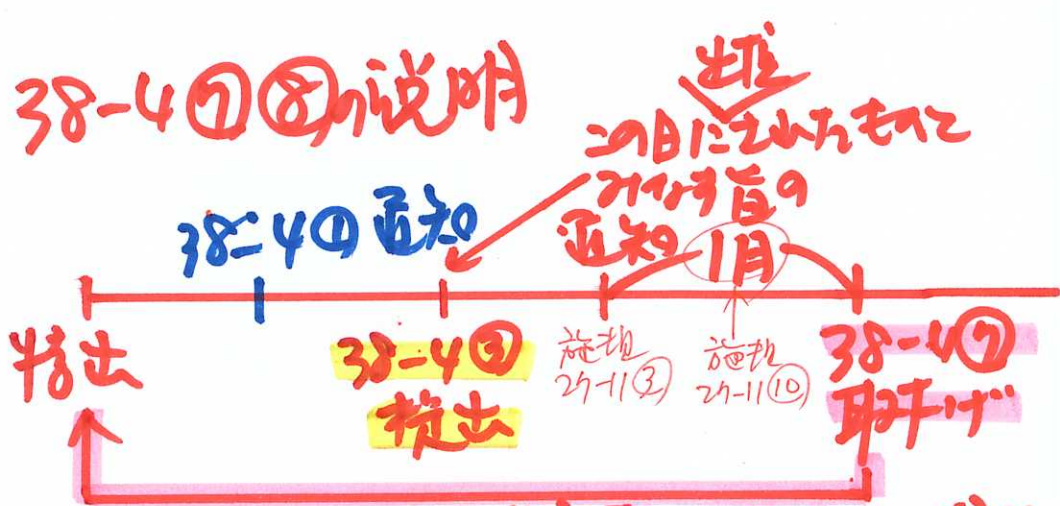 38-4⑦⑧の説明
出願
この日にされたものと
みなす旨の
通知
38-4①通知
1月
特出
38-4③
提出
施規
27-11③
施規
27-11⑩
38-4⑦
取下げ